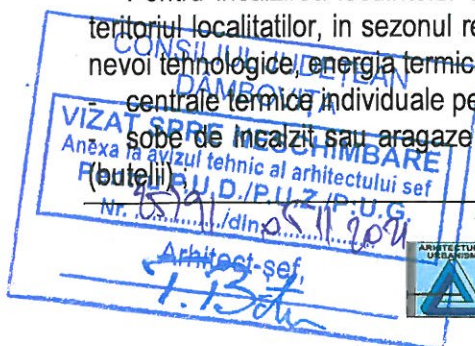 teritoriul localitatilor, in sezonul
nevoi tehnologice, energia termic
- centrale termice individuale pe
- sobe de incalzit sau aragaze
(butelii) ;
CONSILIUL JUDETEAN
DÂMBOVIȚA
VIZAT SPRE NESCHIMBARE
Anexa la avizul tehnic al arhitectului sef
P.U.D./P.U.Z./P.U.G.
Nr. /din 05.11.2021
Arhitect-șef,
ARHITECTUR
URBANISM